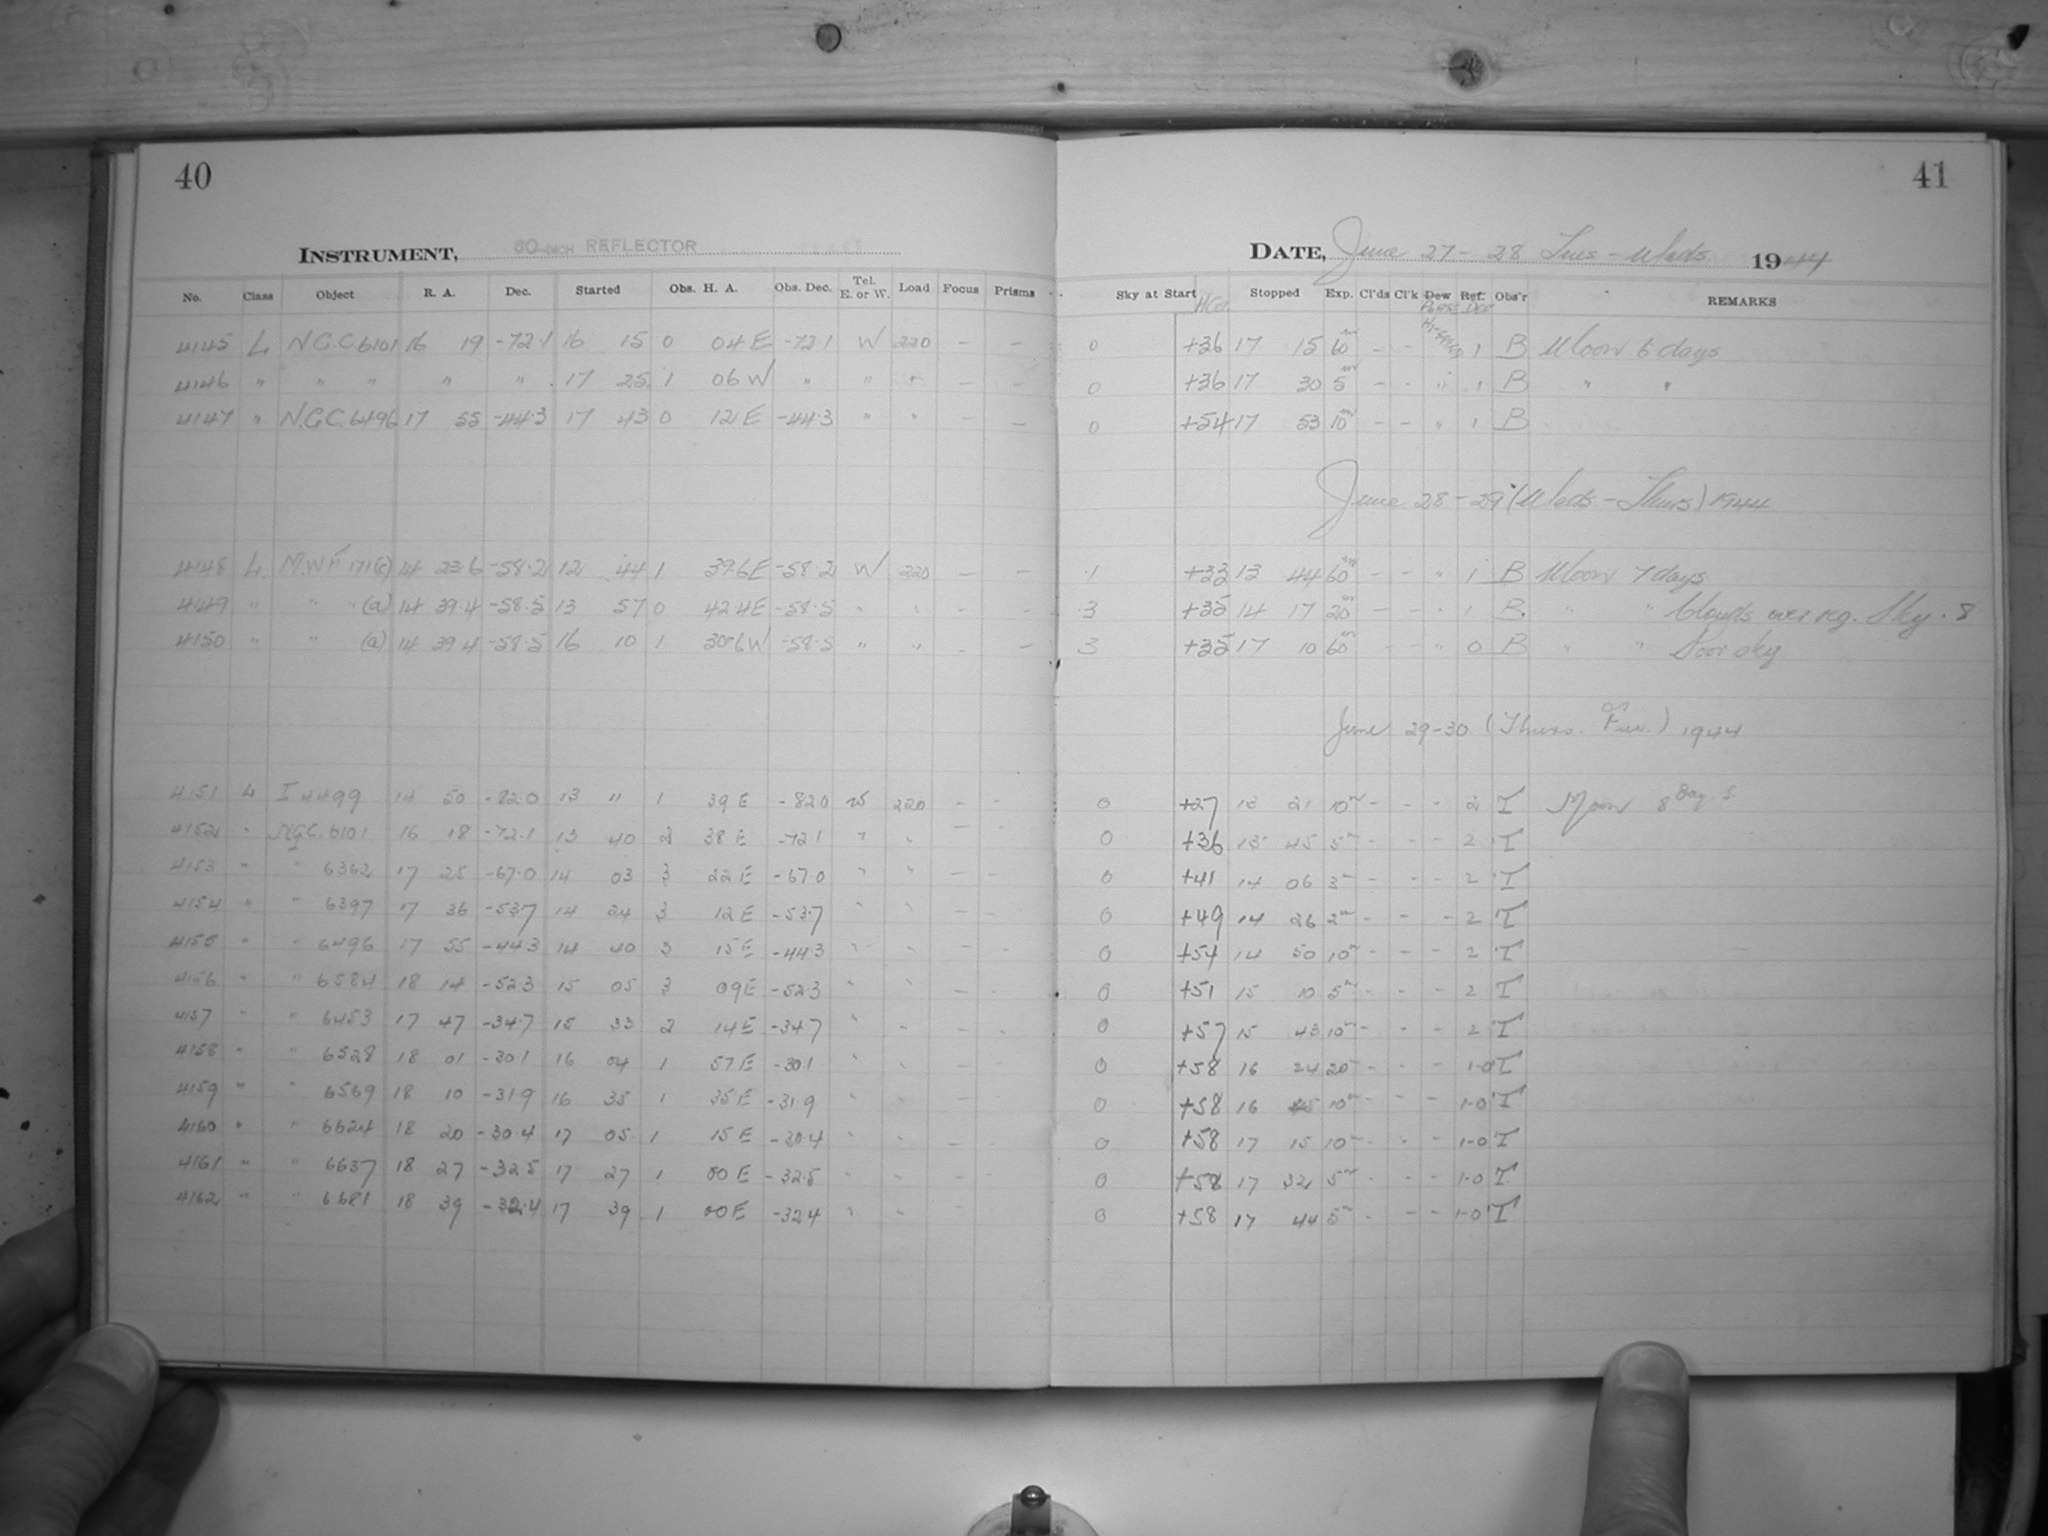 40
41
INSTRUMENT, 60-INCH REFLECTOR
DATE, June 27 - 28 Tues - Weds 1944
No. Class Object R. A. Dec. Started Obs. H. A. Obs. Dec. Tel. E. or W. Load Focus Prisms Sky at Start Stopped Exp. Cl'ds Cl'k Dew Ref. Obs'r REMARKS
4145 L N.G.C. 6101 16 19 -72.1 16 15 0 04 E -72.1 W 220 - - 0 +36 17 15 60m - - 1 B Moon 6 days
4146 " " " " " 17 25 1 06 W " " " - - 0 +36 17 30 5m - - " 1 B " "
4147 " N.G.C. 6496 17 55 -44.3 17 43 0 12 E -44.3 " " - - 0 +54 17 53 10m - - " 1 B
June 28 - 29 (Weds - Thurs) 1944
4148 L 14 23.6 -58.2 12 44 1 39.6 E -58.2 W 220 - - 1 +33 13 44 60m - - " 1 B Moon 7 days
4149 " " (a) 14 39.4 -58.5 13 57 0 42.4 E -58.5 " " - - 3 +35 14 17 20m - - " 1 B " " Clouds over reg. Sky . 8
4150 " " (a) 14 39.4 -58.5 16 10 1 30.6 W -58.5 " " - - 3 +35 17 10 60m - - " 0 B " " Poor sky
June 29-30 (Thurs. Fri.) 1944
4151 L I 4499 14 50 -82.0 13 11 1 39 E -82.0 W 220 - - 0 +27 13 21 10m - - " 2 T Moon 8 Days.
4152 " N.G.C. 6101 16 18 -72.1 13 40 2 38 E -72.1 " " - - 0 +36 13 45 5m - - - 2 T
4153 " " 6362 17 25 -67.0 14 03 3 22 E -67.0 " " - - 0 +41 14 06 3m - - - 2 T
4154 " " 6397 17 36 -53.7 14 24 3 12 E -53.7 " " - - 0 +49 14 26 2m - - - 2 T
4155 " " 6496 17 55 -44.3 14 40 3 15 E -44.3 " " - - 0 +54 14 50 10m - - - 2 T
4156 " " 6584 18 14 -52.3 15 05 3 09 E -52.3 " " - - 0 +51 15 10 5m - - - 2 T
4157 " " 6453 17 47 -34.7 15 33 2 14 E -34.7 " " - - 0 +57 15 43 10m - - - 2 T
4158 " " 6528 18 01 -30.1 16 04 1 57 E -30.1 " " - - 0 +58 16 24 20m - - - 1-0 T
4159 " " 6569 18 10 -31.9 16 35 1 35 E -31.9 " " - - 0 +58 16 45 10m - - - 1-0 T
4160 " " 6624 18 20 -30.4 17 05 1 15 E -30.4 " " - - 0 +58 17 15 10m - - - 1-0 T
4161 " " 6637 18 27 -32.5 17 27 1 00 E -32.5 " " - - 0 +58 17 32 5m - - - 1-0 T
4162 " " 6681 18 39 -32.4 17 39 1 00 E -32.4 " " - - 0 +58 17 44 5m - - - 1-0 T